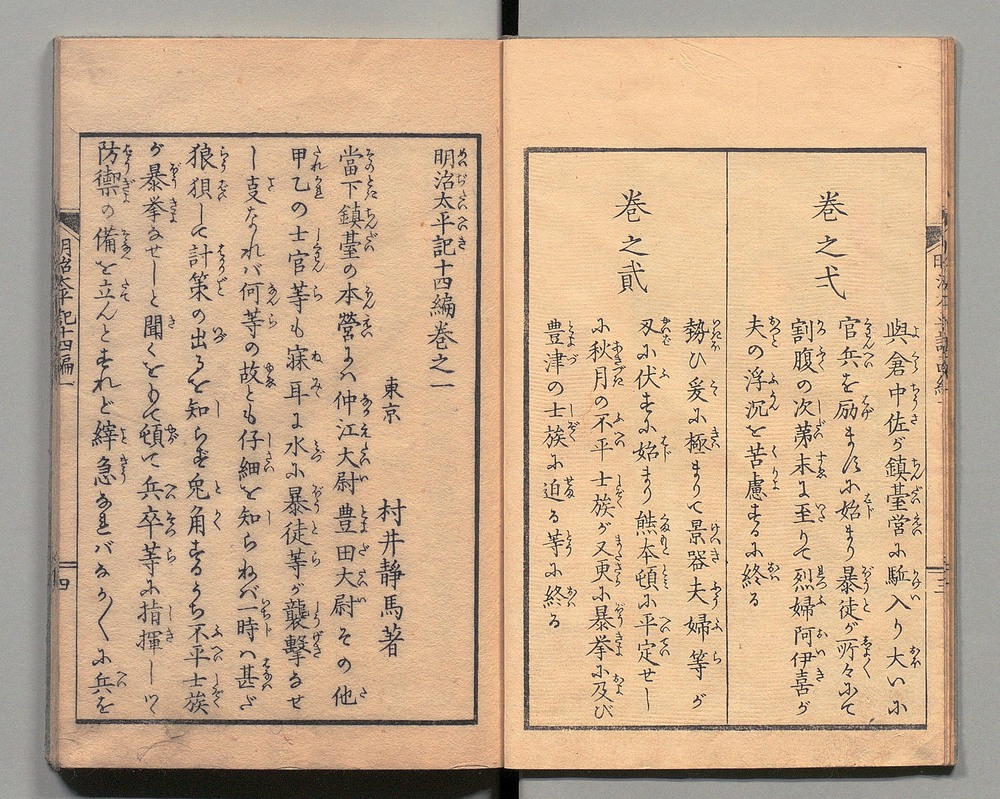 巻之弌
與倉中佐が鎮臺営に駈入り大いに
官兵を励ますに始まり暴徒が所々にて
割腹の次第末に至りて烈婦阿伊喜が
夫の浮沉を苦慮するに終る
巻之貳
勢ひ爰に極まりて景器夫婦等が
刄に伏すに始まり熊本頓に平定せし
に秋月の不平士族が又更に暴挙に及び
豊津の士族に迫る等に終る
明治太平記十四編巻之一
東京 村井静馬著
當下鎮臺の本營には仲江大尉豊田大尉その他
甲乙の士官等も寐耳に水に暴徒等が襲撃なせ
し支なれバ何等の故とも仔細を知らねバ一時ハ甚だ
狼狽して計策の出るを知らず兎角するうち不平士族
が暴挙なせしと聞くをもて頓て兵卒等に指揮しつ
防禦の備を立んとすれど緈急なれバなか〱に兵を
明治太平記十四編一
四